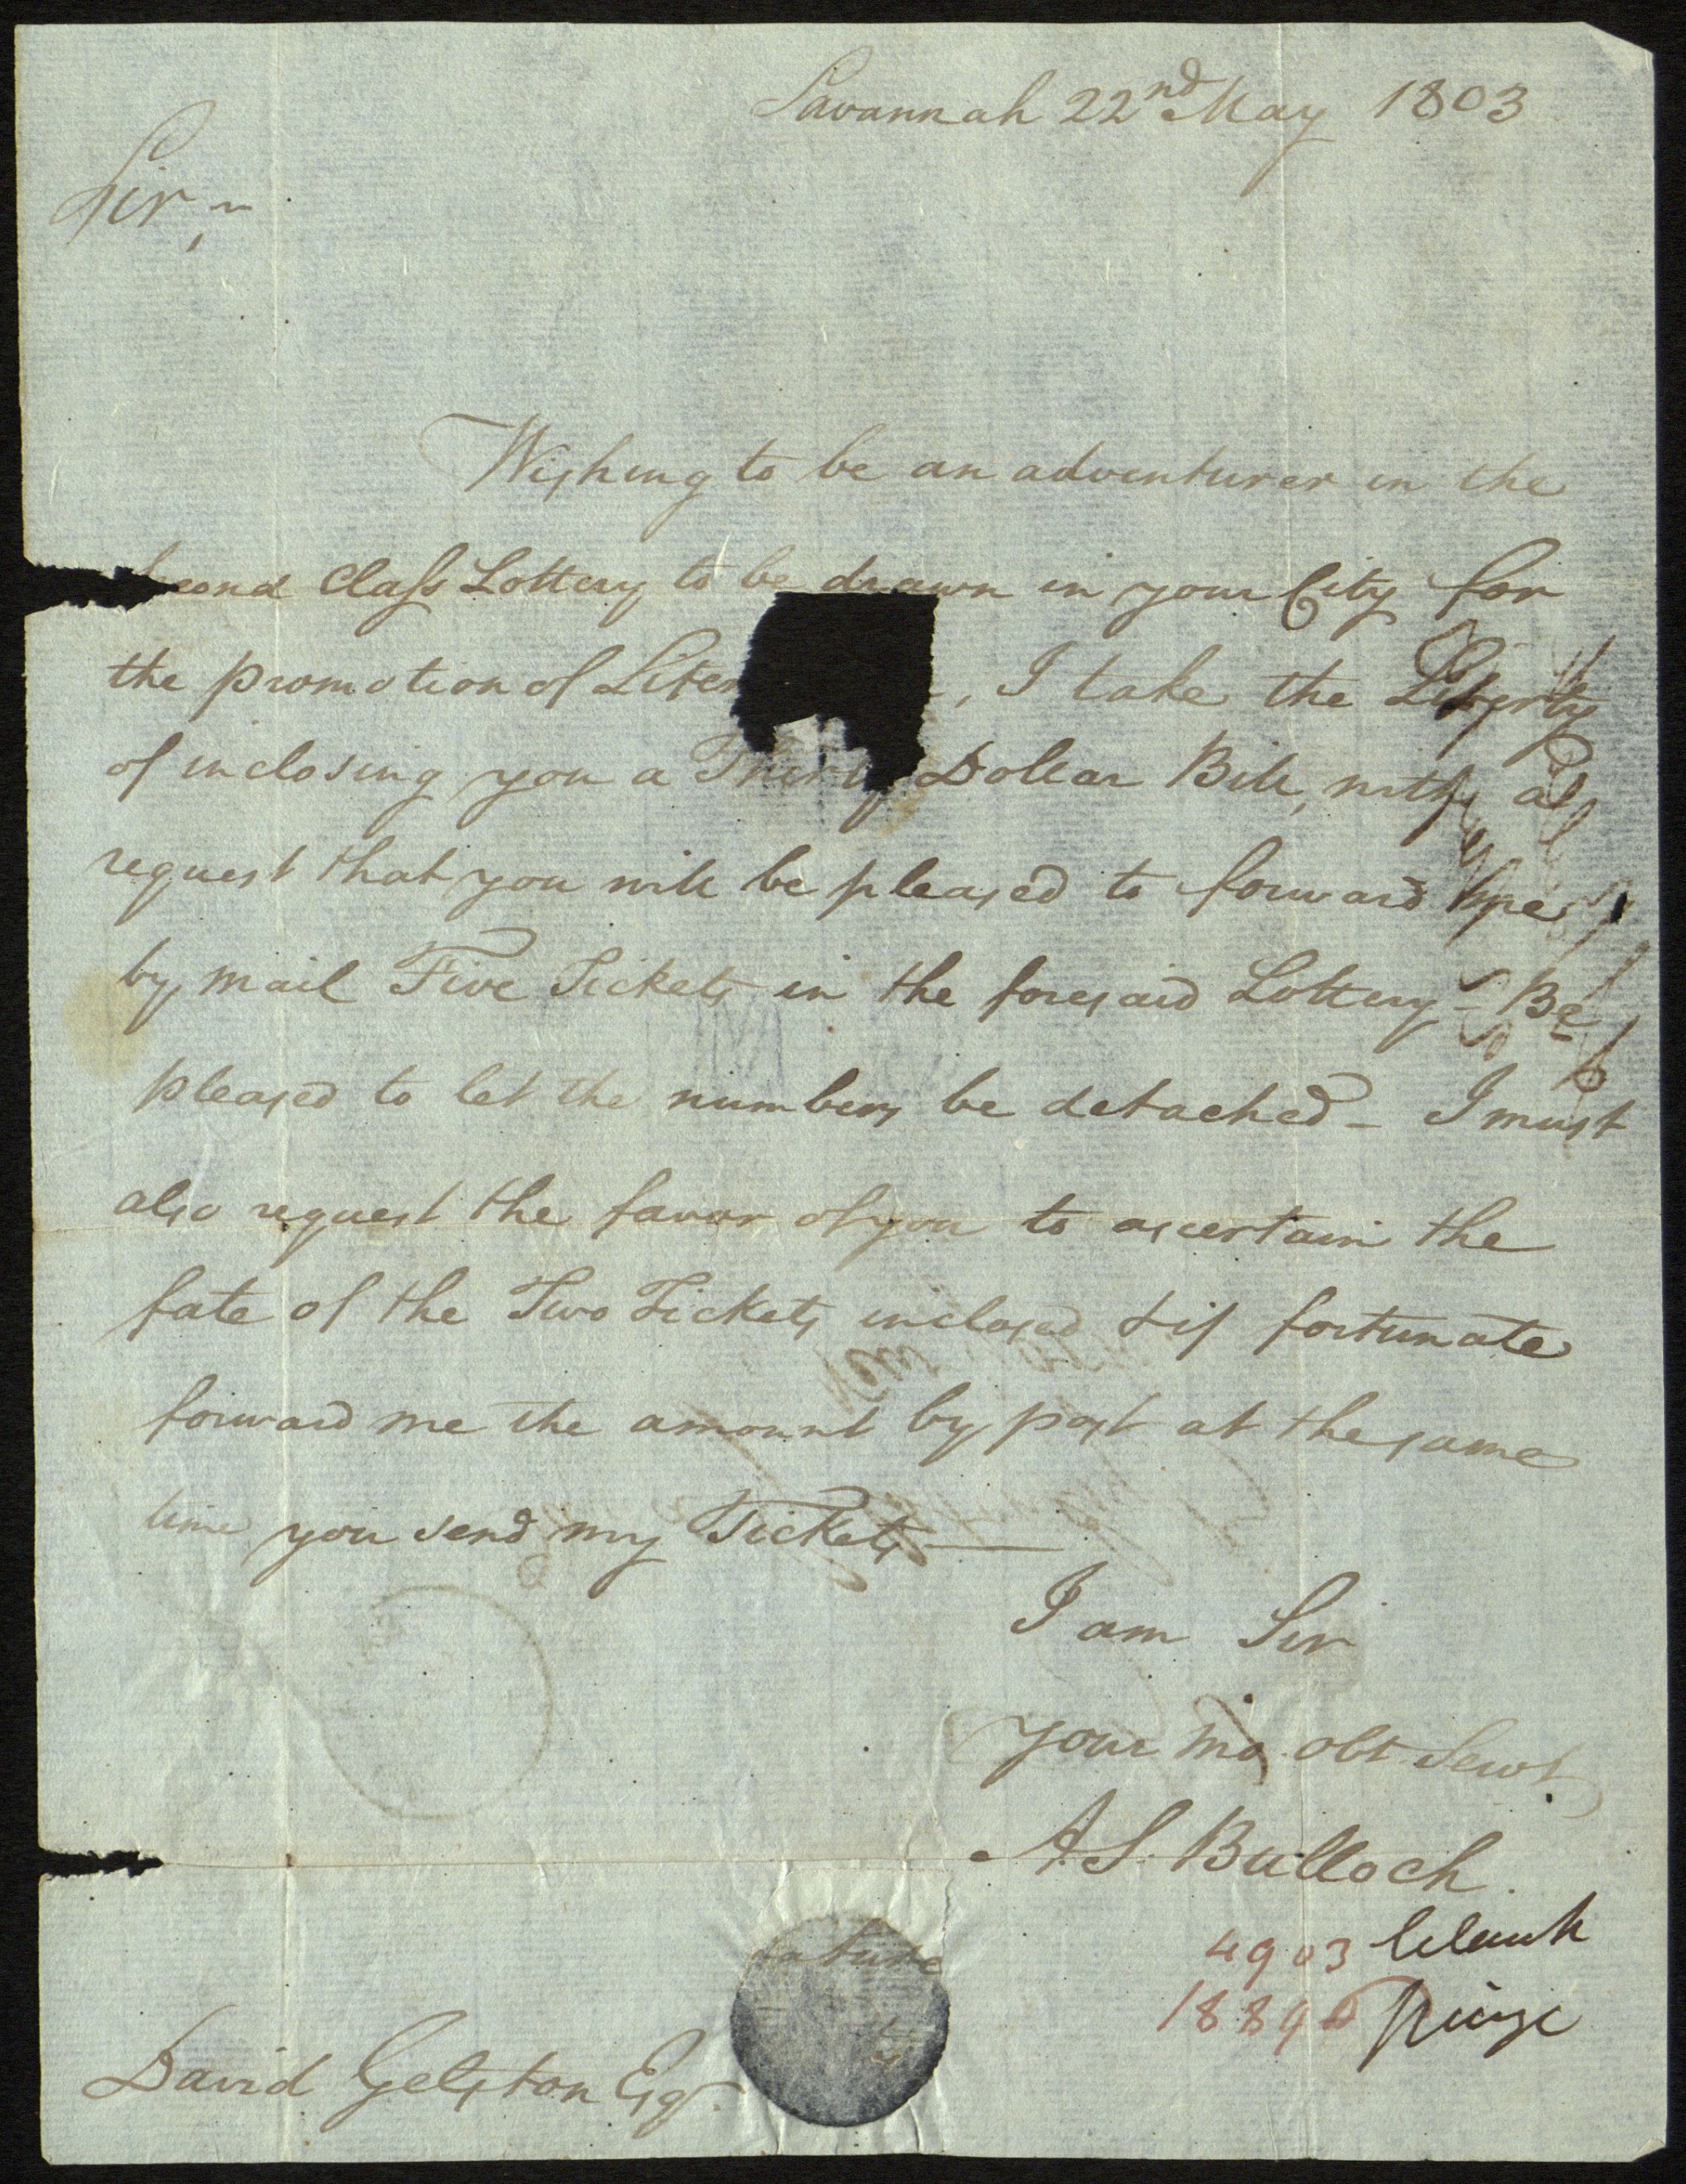 Savannah 22nd May 1803
Sir,
Wishing to be an adventurer in the
second Class Lottery to be drawn in your City for
the promotion of Liter , I take the Liberty
of inclosing you a Thirty Dollar Bill, with a
request that you will be pleased to forward me
by mail Five Tickets in the foresaid Lottery - Be
pleased to let the numbers be detached - I must
also request the favor of you to ascertain the
fate of the Two Tickets inclosed & if fortunate
forward me the amount by post at the same
time you send my Tickets —
I am Sir
your mo. obt Servt
A. S. Bulloch.
4903 blank
1889
ature
David Gelston Esqr.